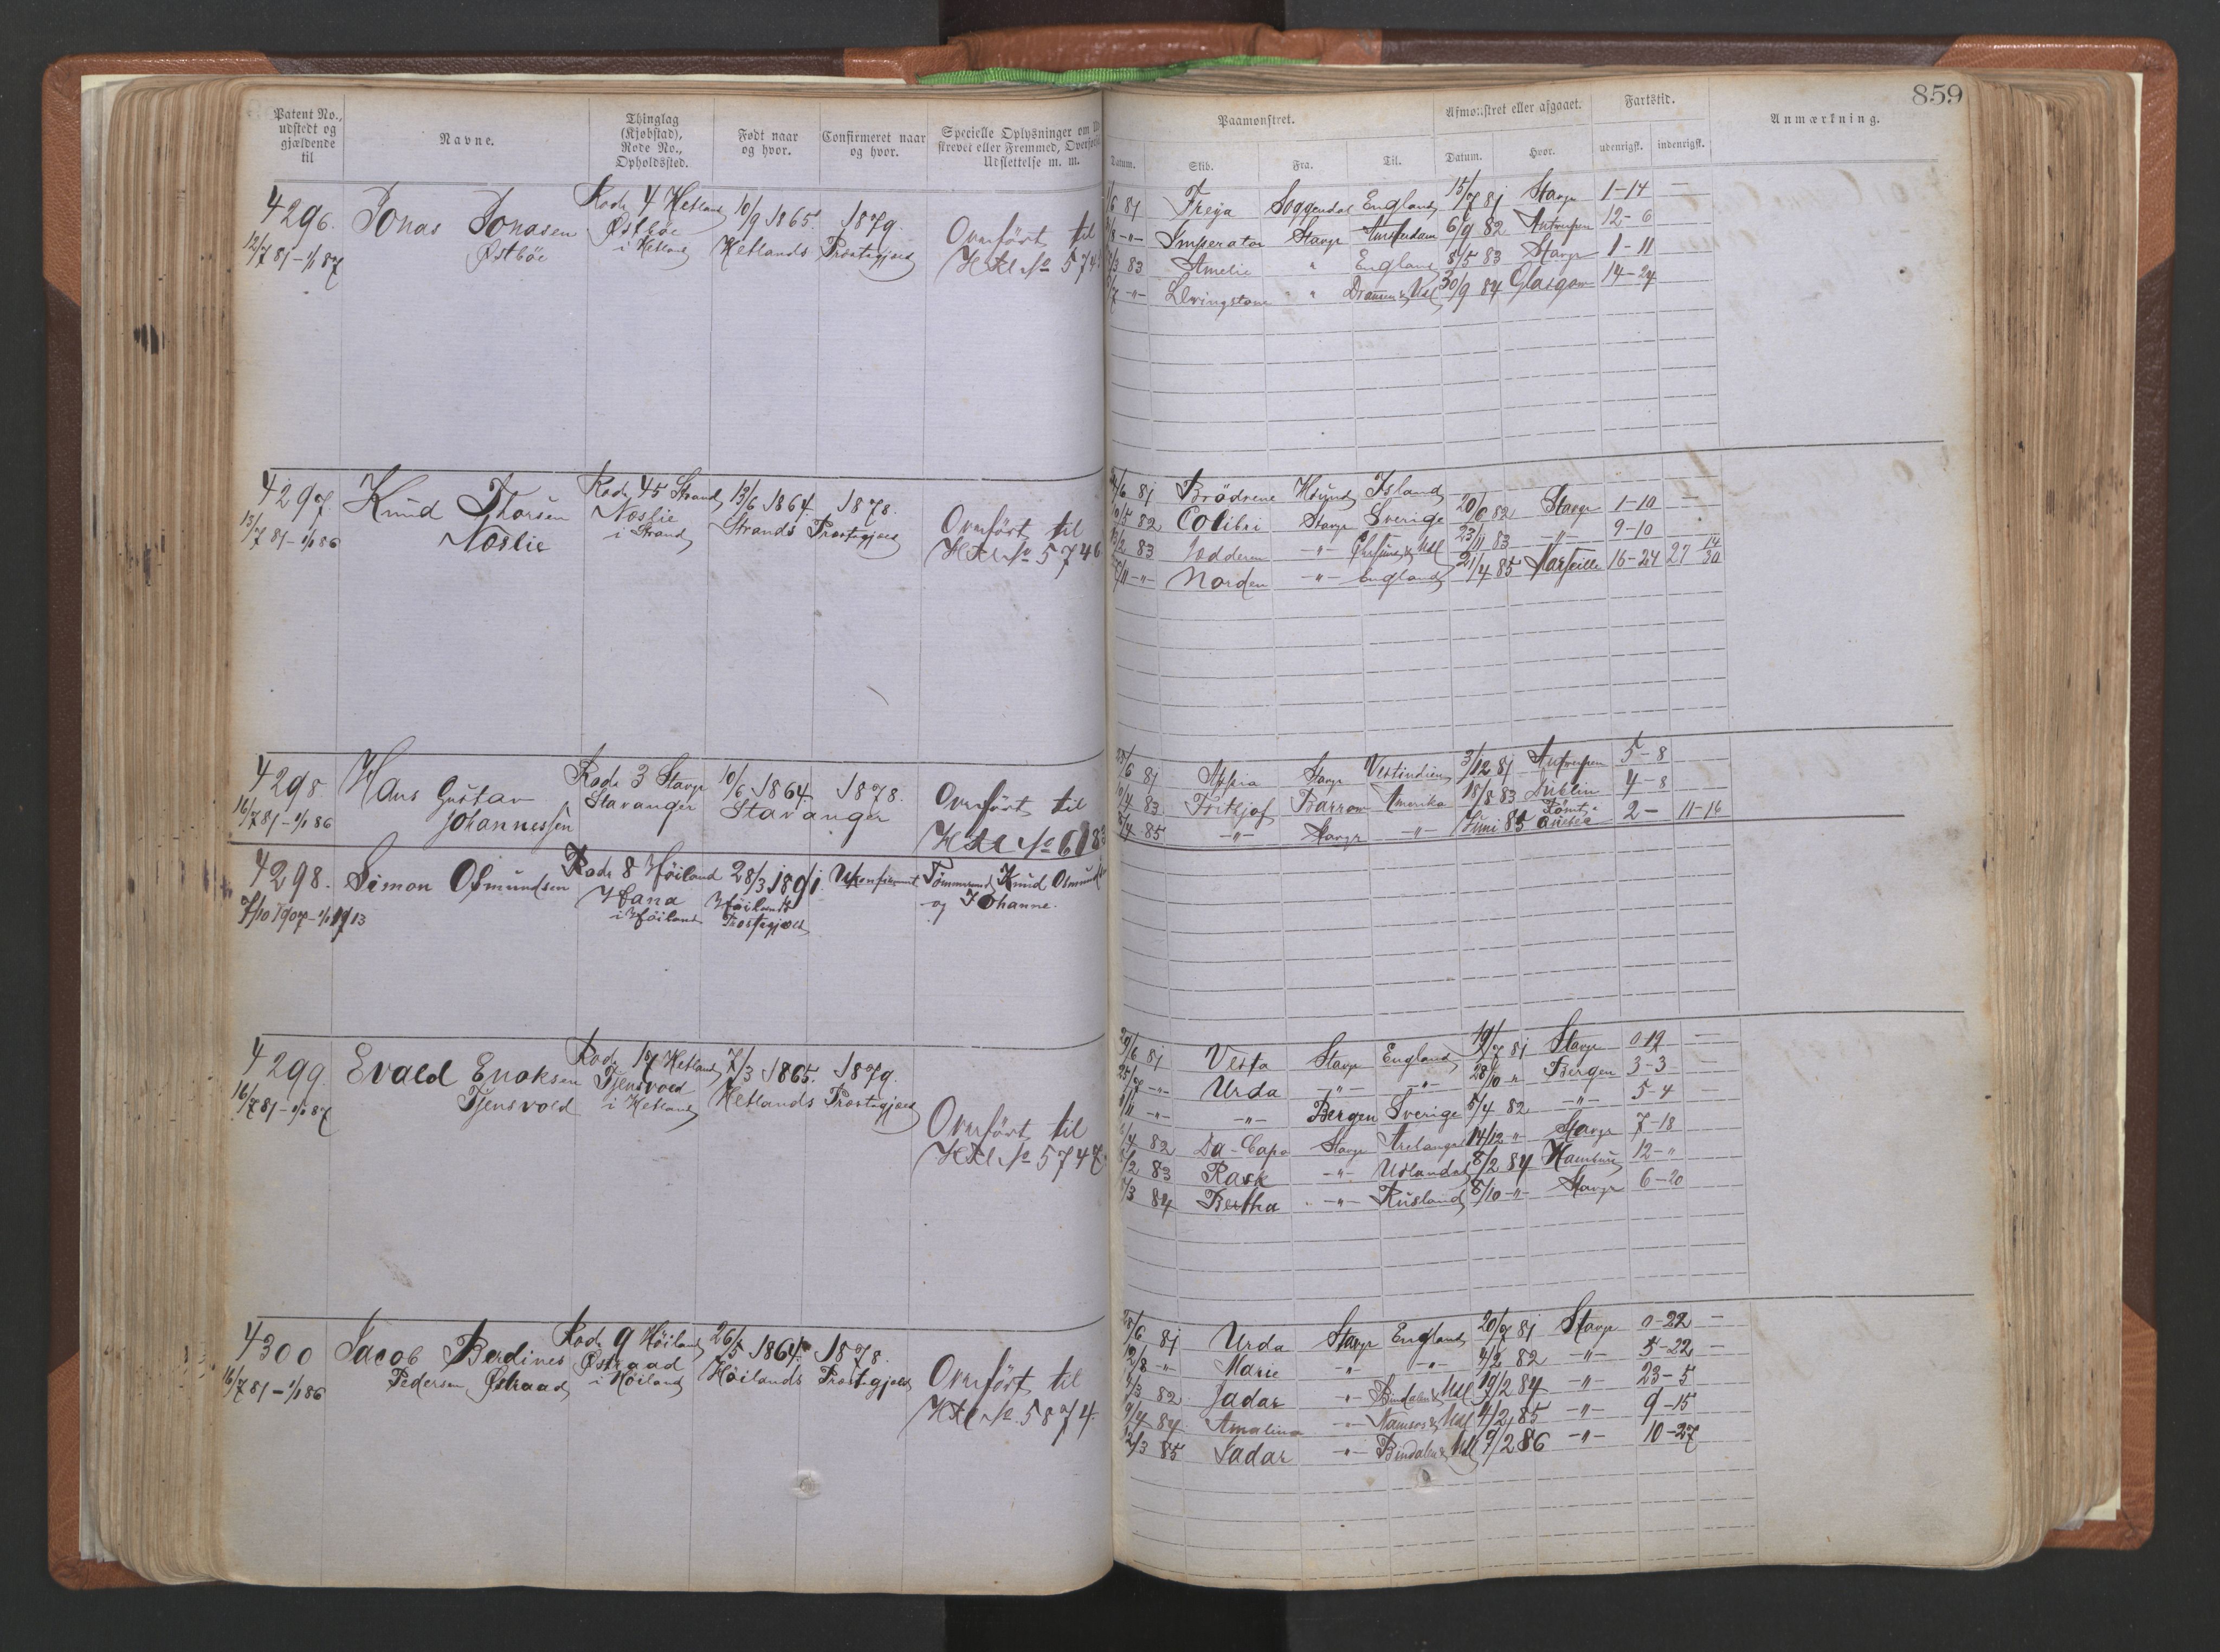 859
Patent No., udstedt og gjældende til
Navne.
Thinglag (Kjøbstad), Rode No., Opholdssted.
Født naar og hvor.
Confirmeret naar og hvor.
Specielle Oplysninger om
strevet eller Fremmed,
Udslettelse m. m.
Paamønstret.
Afmønstret eller afgaaet.
Fartstid.
Anmærkning.
Datum. Skib. Fra. Til. Datum. Hvor. udenrigsk. indenrigsk.
4296. Jonas Jonasen Rode 4 Hetland 10/9 1865. 1879.
12/7 81 – 1/1 87 Østböe Østböe i Hetland Hetlands Præstegjæld
Overført til
HRl No 574
/6 81 Freya Soggendal England 15/7 81 Stavgr 1-14 —
/8 -"- Imperator Stavgr Amsterdam 6/9 82 Antwerpen 12-6
/3 83 Amelie " England 8/5 83 Stavgr 1-11 —
/7 -"- Livingstone " Drammen & Udl 30/9 84 Glasgow 14-24
4297. Knud Thorsen Rode 45 Strand 13/6 1864. 1878.
13/7 81 – 1/1 86 Noslie Noslie i Strand Strands Præstegjæld
Overført til
HRl No 5746
/6 81 Brödrene Island
/5 82 Colibri Stavgr Sverige 20/6 82 Stavgr 1-10 —
/2 83 -"- 23/11 83 -"- 9-10
/11 -"- Norden -"- England 21/4 85 Marseille 16-24 27 14/30
4298 Hans Gustav Rode 3 Stavgr 10/6 1864. 1878.
16/7 81 – 1/1 86 Johannessen Stavanger Stavanger
Overført til
HRl No 6183
/6 81 Stavgr Vestindien 3/12 81 Antwerpen 5-8
/4 83 Frithjof Barrow Amerika 18/8 83 Dublin 4-8
/4 85 -"- Stavgr -"- Juni 85 2- 11-16
4298. Simon Osmundsen Rode 8 Höiland 28/3 1891. Ukonfirmert Knud Osmund
7/10 1907 – 1/1 1913 Hana i Höiland Höilands Præstegjæld og Johanne.
4299. Evald Enoksen Rode 17 Hetland 7/3 1865. 1879.
16/7 81 – 1/1 87 Tjensvold Tjensvold i Hetland Hetlands Præstegjæld
Overført til
HRl No 5747
/6 81 Vesta Stavgr England 19/7 81 Stavgr 0-19 —
25/7 -"- Urda -"- -"- 28/10 " Bergen 3-3 —
/11 -"- -"- Bergen Sverige 5/4 82 -"- 5-4 —
/4 82 Da-Capo Stavgr 14/12 " Stavgr 7-18
/2 83 Rask -"- Udlandet 8/2 84 12-"
/3 84 Bertha -"- Rusland 8/10 -"- Stavgr 6-20
4300 Jacob Berdines Rode 9 Höiland 26/5 1864. 1878.
16/7 81 – 1/1 86 Pedersen Østraad Østraad i Höiland Höilands Præstegjæld
Overført til
HRl No. 5874.
/6 81 Urda Stavgr England 20/7 81 Stavgr 0-22 —
/8 -"- Marie " -"- 4/2 82 -"- 5-22 —
/3 82 Jadar -"- Bindalen & Udl 19/2 84 -"- 23-5
/4 84 Amalina -"- Namsos & Udl 4/2 85 -"- 9-15
/3 85 Jadar -"- Bindalen & Udl 9/2 86 -"- 10-27